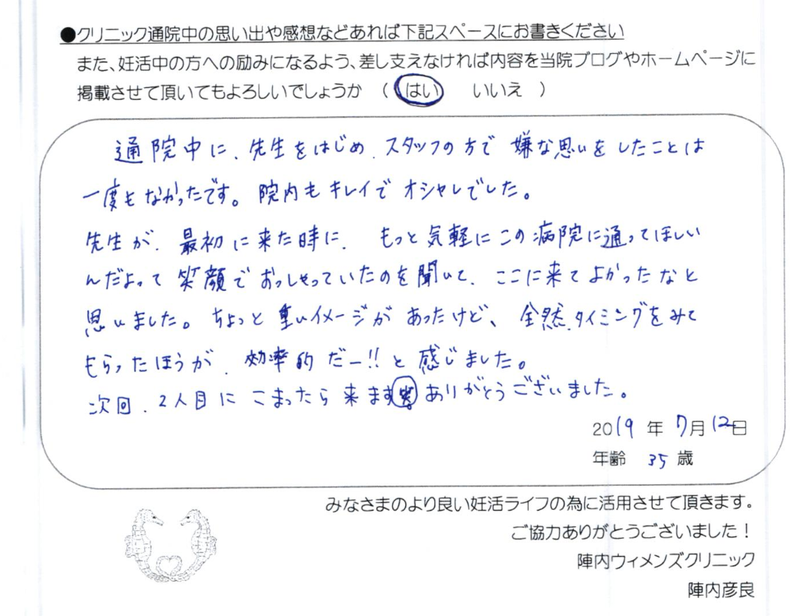 ●クリニック通院中の思い出や感想などあれば下記スペースにお書きください
また、妊活中の方への励みになるよう、差し支えなければ内容を当院ブログやホームページに
掲載させて頂いてもよろしいでしょうか （ はい いいえ ）
通院中に、先生をはじめ、スタッフの方で 嫌な思いをしたことは
一度もなかったです。院内もキレイで オシャレでした。
先生が、最初に来た時に、もっと気軽にこの病院に通ってほしい
んだよって笑顔でおっしゃっていたのを聞いて、ここに来てよかったなと
思いました。ちょっと重いイメージがあったけど、全然、タイミングをみて
もらったほうが、効率的だー!!と感じました。
次回、2人目にこまったら来ます ありがとうございました。
2019 年 7月 12日
年齢 35 歳
みなさまのより良い妊活ライフの為に活用させて頂きます。
ご協力ありがとうございました！
陣内ウィメンズクリニック
陣内彦良